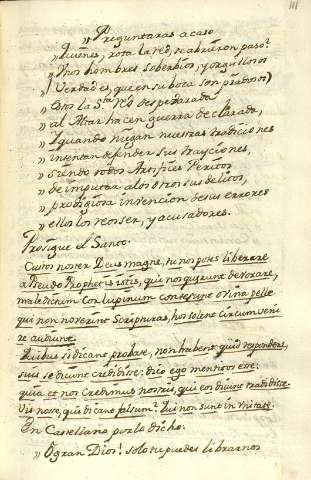 111
" Preguntaras a caso
" Quienes, rota la red, se abrieron paso?
" Unos hombres soberbios, y orgullosos
" (Verdad es, que en su boca son piadosos)
" Dios la Sta
" al Altar hacen guerra declarada,
" Y quando niegan nuestras tradiciones
" intentan defender sus trayciones,
" Siendo todos Artifices Peritos
" de imputar a los otros sus delitos,
" prodigiosa invencion de sus errores
" ellos los reos ser, y acusadores.
Prosigue el Santo.
Custos noster Deus magne, tu nos potes liberare
a Pseudo Prophetis istis, qui nos quærunt devorare,
maledictum Cor lupinum contegunt ovina pelle
qui non noverint Scripturas, hos solent circumveni
re audiunt
Quibus si dicant probate, non habent quid respondere,
suis se dicunt credidisse; dico ego mentitos esse:
quia et nos Credimus nostris, qui eos dicunt tradidisse
Vis nosse, quis dicant falsum? Qui non sunt in Unitate.
En Castellano por lo dicho.
" O gran Dios! solo tu puedes librarnos